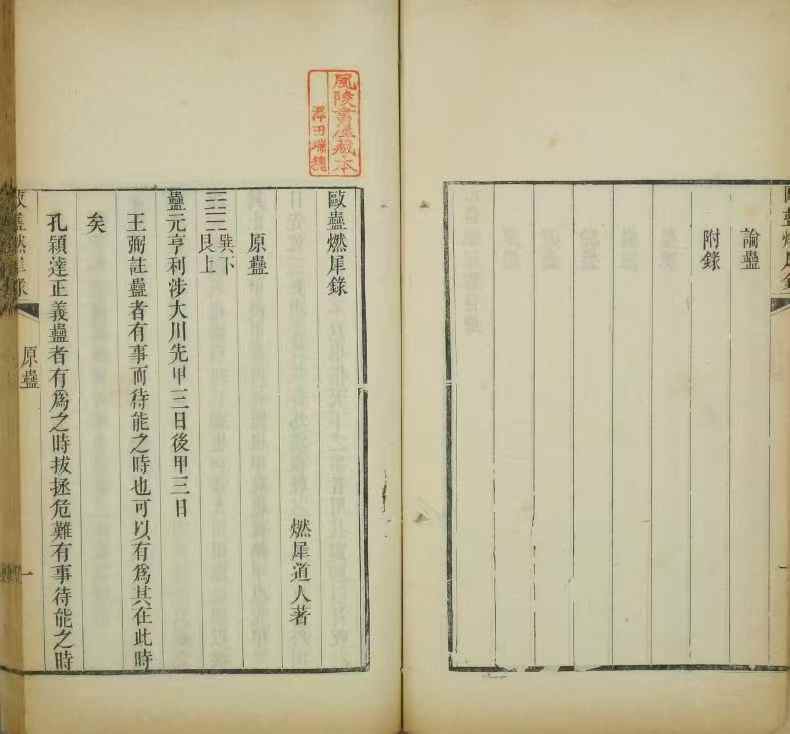 論蠱
附錄
風陵書屋藏本
歐蠱燃犀錄
燃犀道人著
原蠱
巽下
艮上
蠱元亨利涉大川先甲三日後甲三日
王弼註蠱者有事而待能之時也可以有爲其在此時
矣
孔穎達正義蠱者有爲之時拔拯危難有事待能之時
原蠱
一